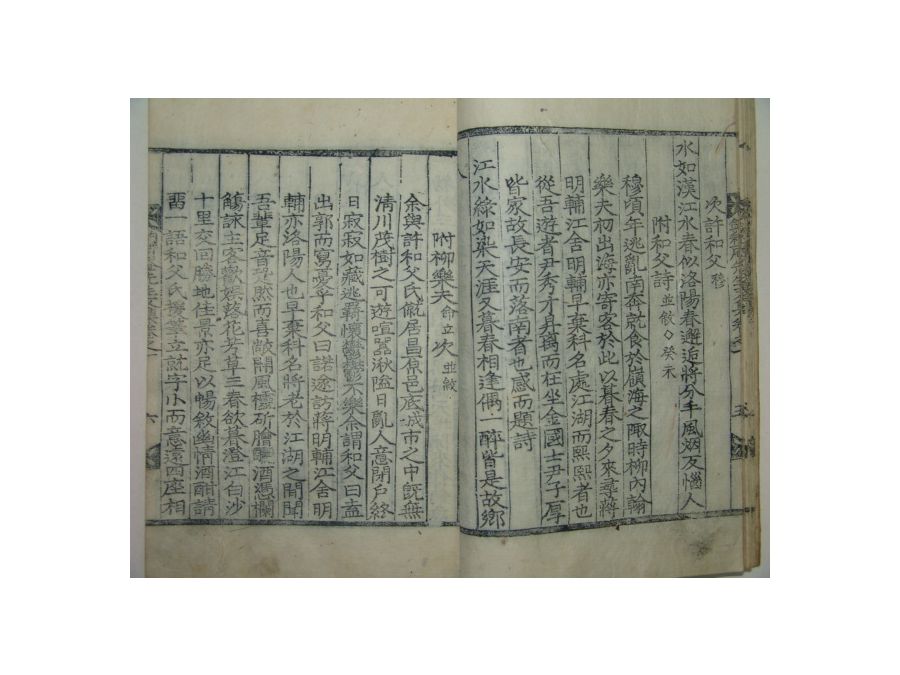 次許和父穆
水如漢江水春似洛陽春邂逅將分手風烟反惱人
附和父詩並敘○癸未
穆頃年逃亂南奔就食於嶺海之陬時柳內翰
樂夫初出海亦寄客於此以暮春之夕來尋蔣
明輔江舍明輔早棄科名處江湖而熙熙者也
從吾遊者尹秀才昇离而在坐金國士尹子厚
皆家故長安而落南者也感而題詩
江水綠如染天涯又暮春相逢偶一醉皆是故鄉
附柳樂天命立次並敘
余與許和父氏僦居昌原邑底城市之中旣無
清川茂樹之可遊喧囂湫隘日亂人意閉戶終
日寂寂如藏逃羇懷鬱鬱不樂余謂和父曰盍
出郭而寫憂乎和父曰諾途訪蔣明輔江舍明
輔亦洛陽人也早棄科名將老於江湖之間聞
吾輩足音跫然而喜敞開風欞斫膾釃酒憑欄
觴詠主客歡娛落花芳草三春欲暮澄江白沙
十里交回勝地佳景亦足以暢敘幽情酒酣請
留一語和父氏援筆立就字小而意遠四座相
五
六